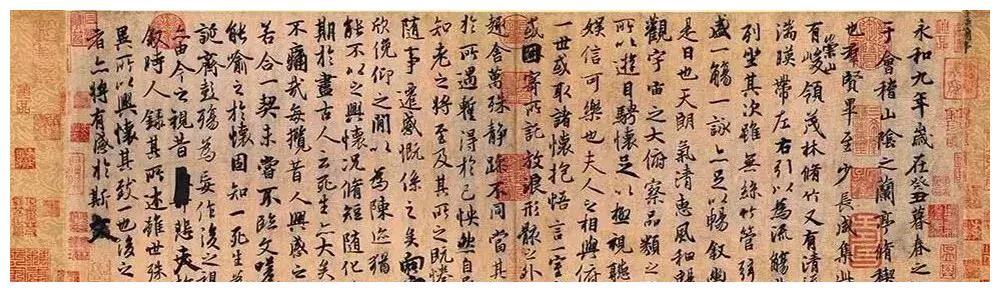 永和九年歲在癸丑暮春之
于會稽山陰之蘭亭脩稧
也群賢畢至少長咸集此
有崇山峻領茂林脩竹又有清流
湍暎帶左右引以為流觴
列坐其次雖無絲竹管弦
盛一觴一詠亦足以暢敘幽
是日也天朗氣清惠風和暢
觀宇宙之大俯察品類之
所以遊目騁懷足以極視聽
娛信可樂也夫人之相與俯
一世或取諸懷抱悟言一室
或因寄所託放浪形骸之外
趣舍萬殊靜躁不同當其
於所遇暫得於己怏然自
知老之將至及其所之既惓
隨事遷感慨係之矣向之
欣俛仰之閒以為陳迹猶
能不以之興懷況脩短隨化
期於盡古人云死生亦大矣
不痛哉每攬昔人興感之
若合一契未嘗不臨文嗟
能喻之於懷固知一死生為
誕齊彭殤為妄作後之視
亦由今之視昔悲夫故
敘時人錄其所述雖世殊
異所以興懷其致一也後之
者亦將有感於斯文